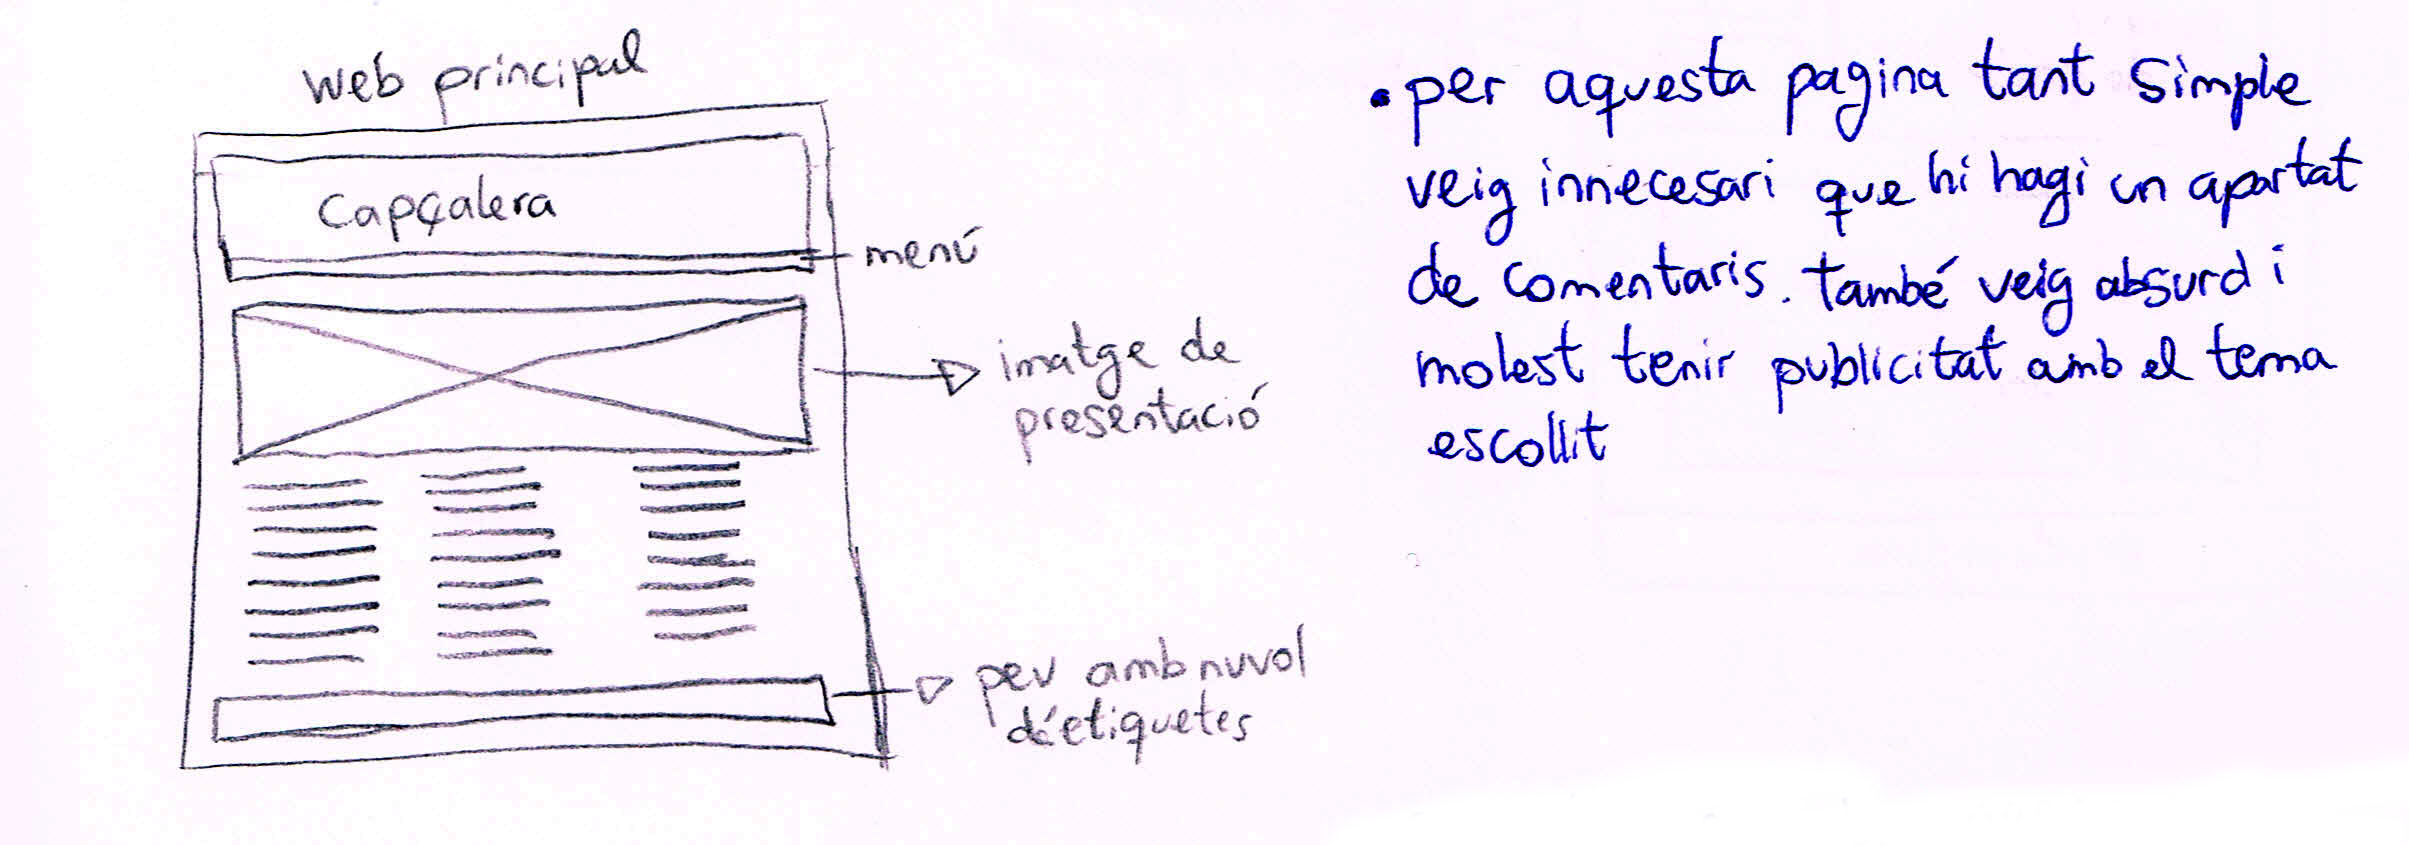 web principal
Capçalera
menú
imatge de
presentació
peu amb nuvol
d'etiquetes
• per aquesta pagina tant simple
veig innecesari que hi hagi un apartat
de comentaris. també veig absurd i
molest tenir publicitat amb el tema
escollit